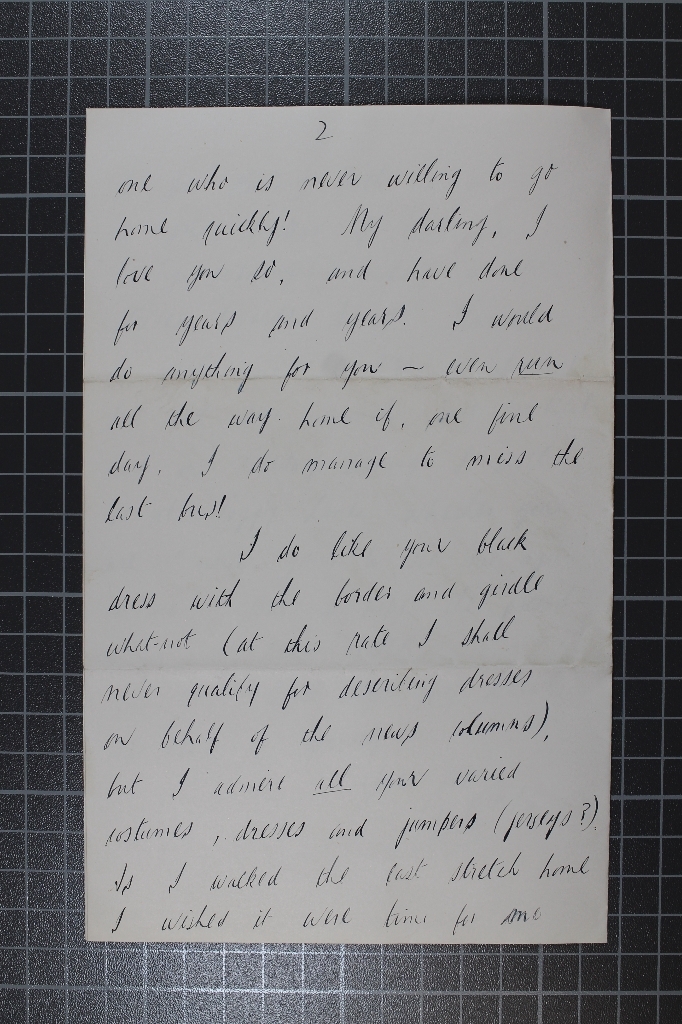 2
one who is never willing to go
home quickly! My darling, I
love you so, and have done
for years and years. I would
do anything for you - even run
all the way home if, one fine
day, I do manage to miss the
last bus!
I do like your black
dress with the border and girdle
what-not (at this rate I shall
never qualify for describing dresses
on behalf of the news columns),
but I admire all your varied
costumes, dresses and jumpers (jerseys?)
As I walked the last stretch home
I wished it were time for me